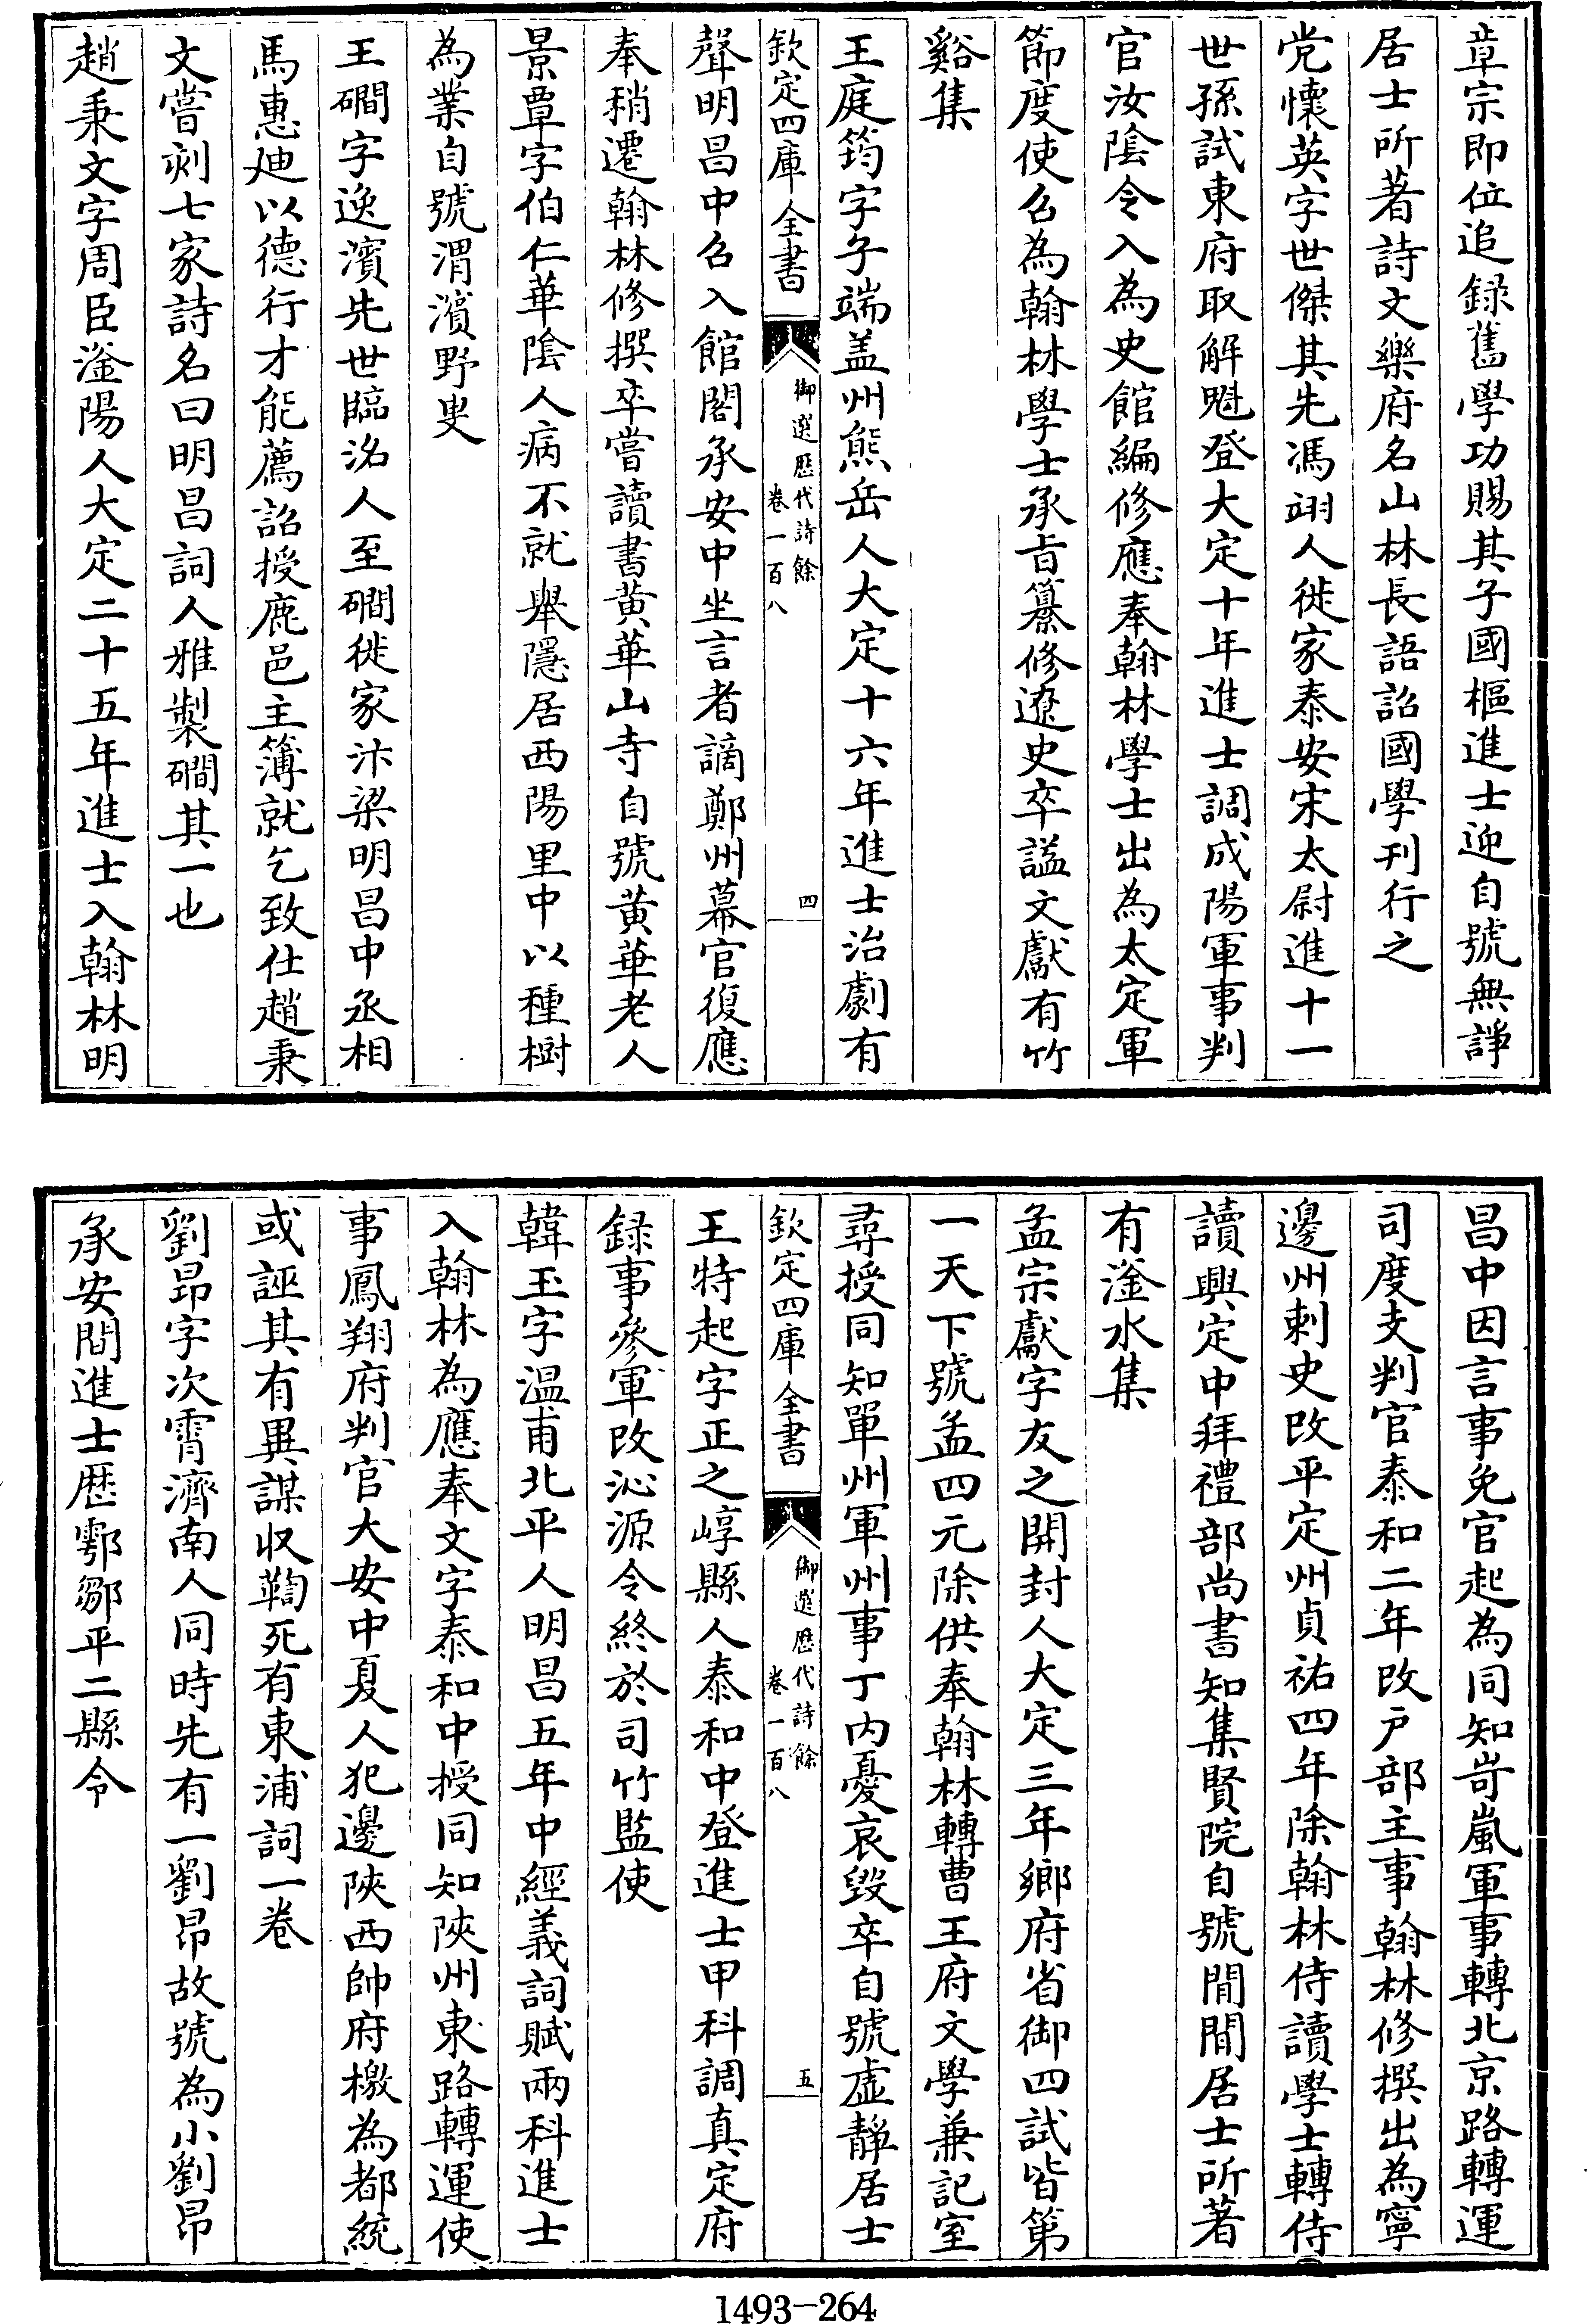 章宗即位追録舊學功賜其子國樞進士迎自號無諍
居士所著詩文樂府名山林長語詔國學刊行之
党懷英字世傑其先馮翊人徙家泰安宋太尉進十一
世孫試東府取解魁登大定十年進士調成陽軍事判
官汝隂令入為史館編修應奉翰林學士出為太定軍
節度使召為翰林學士承㫖纂修遼史卒諡文獻有竹
谿集
王庭筠字子端盖州熊岳人大定十六年進士治劇有
欽定四庫全書
御選歴代詩餘
卷一百八
四
聲明昌中召入館閣承安中坐言者謫鄭州幕官復應
奉稍遷翰林修撰卒嘗讀書黄華山寺自號黄華老人
景覃字伯仁華隂人病不就舉隱居西陽里中以種樹
為業自號渭濱野叟
王磵字逸濱先世臨洺人至磵徙家汴梁明昌中丞相
馬惠廸以德行才能薦詔授鹿邑主簿就乞致仕趙秉
文嘗刻七家詩名曰明昌詞人雅製磵其一也
趙秉文字周臣滏陽人大定二十五年進士入翰林明
昌中因言事免官起為同知岢嵐軍事轉北京路轉運
司度支判官泰和二年改户部主事翰林修撰出為寧
邊州刺史改平定州貞祐四年除翰林侍讀學士轉侍
讀興定中拜禮部尚書知集賢院自號閒閒居士所著
有滏水集
孟宗獻字友之開封人大定三年鄉府省御四試皆第
一天下號孟四元除供奉翰林轉曹王府文學兼記室
尋授同知單州軍州事丁内憂哀毁卒自號虛靜居士
欽定四庫全書
御選歴代詩餘
卷一百八
五
王特起字正之崞縣人泰和中登進士甲科調真定府
録事參軍改沁源令終於司竹監使
韓玉字温甫北平人明昌五年中經義詞賦兩科進士
入翰林為應奉文字泰和中授同知陜州東路轉運使
事鳳翔府判官大安中夏人犯邊陜西帥府檄為都統
或誣其有異謀收鞫死有東浦詞一卷
劉昂字次霄濟南人同時先有一劉昂故號為小劉昂
承安間進士歴鄠鄒平二縣令
1493—264